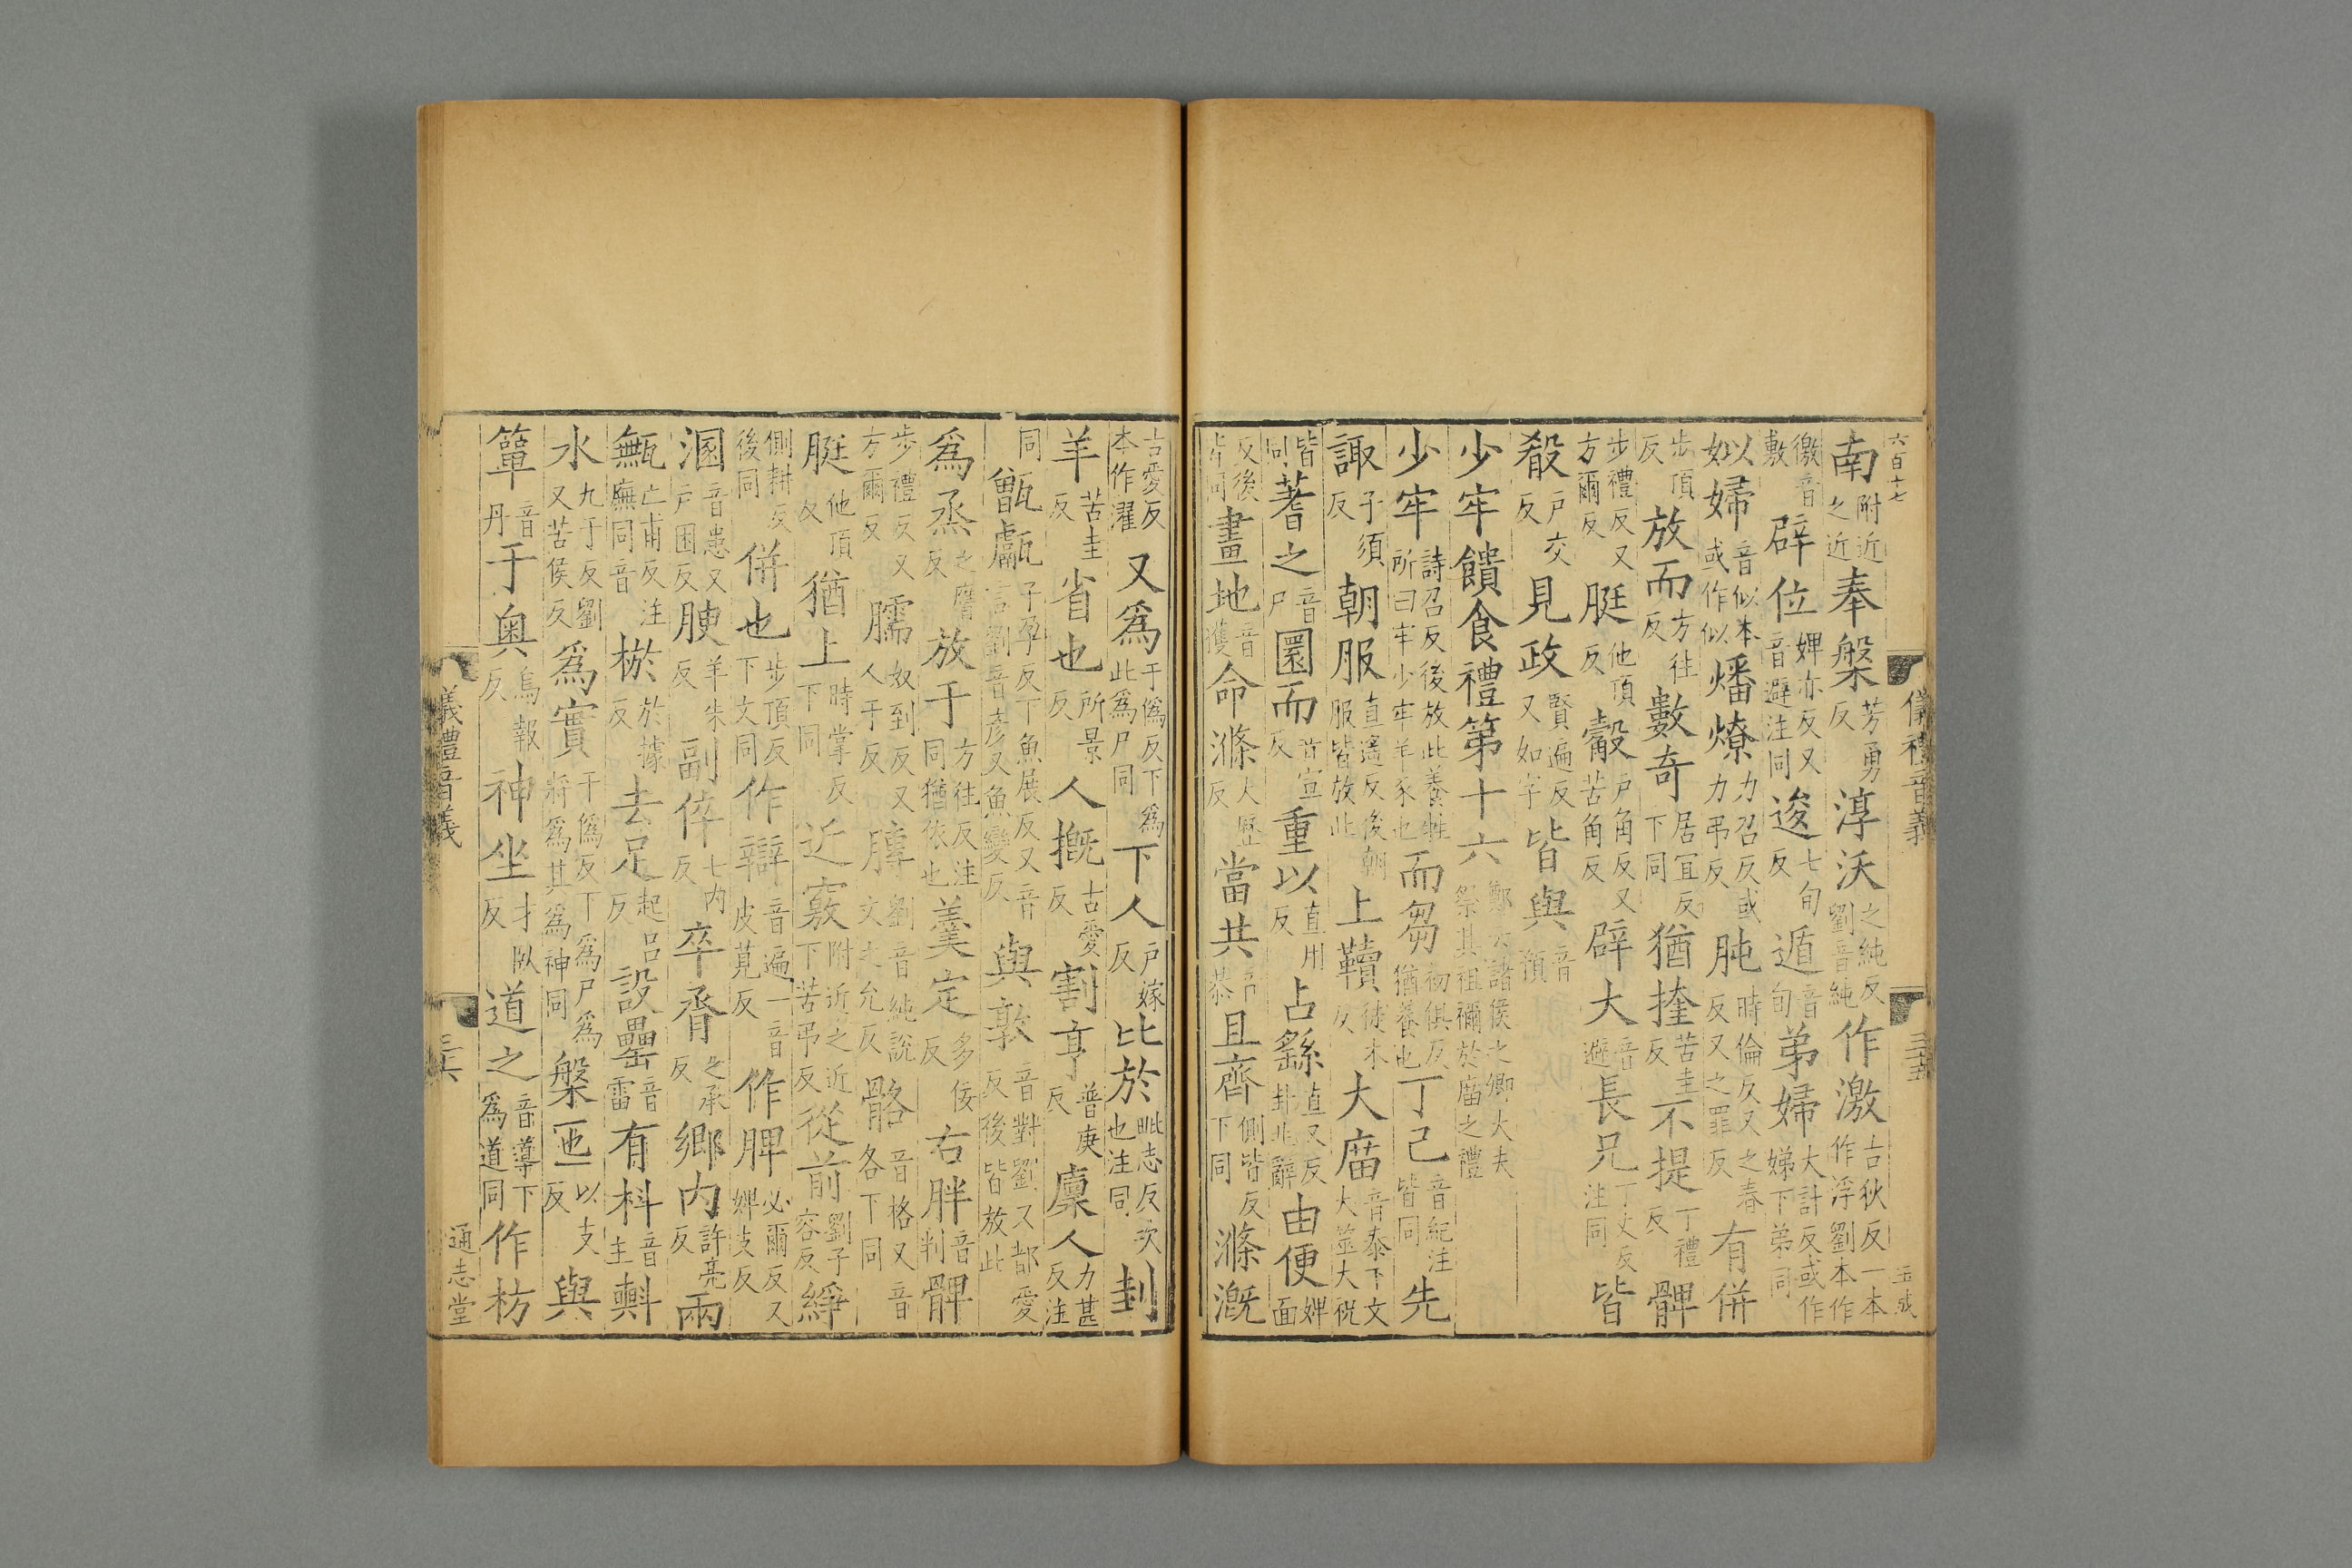 六百十七
儀禮音義
三十五
玉成
南附近之近奉槃芳勇反淳沃之純反劉音純作激古狄反一本作浮劉本作
徼音敷辟位婢亦反又音避注同逡七旬反遁音旬弟婦大計反或作娣下弟同
以如婦音似本或作似燔燎力召反或力弔反肫時倫反又之春反又之罪反有併
步頂反放而方往反數奇居宜反下同猶挂苦圭反不提丁禮反髀
步禮反又方爾反脡他頂反觳戶角反又苦角反辟大音避長兄丁丈反注同皆
殽戶交反見政賢遍反又如字皆與音預
少牢饋食禮第十六鄭云諸侯之卿大夫祭其祖禰於廟之禮
少牢詩召反後放此養牲所曰牢少牢羊豕也而芻初俱反猶養也丁己音紀注皆同先
諏子須反朝服直遙反後朝服皆放此上韇徒木反大廟音泰下文大筮大祝
皆同蓍之音尸圜而音宣反重以直用反占繇直又反卦兆辭由便婢面
反後皆同畫地音獲命滌大歷反當共音恭且齊側皆反下同滌溉
古愛反本作濯又爲于僞反下爲此爲尸同下人戶嫁反比於毗志反次也注同刲
羊苦圭反省也所景反人摡古愛反割亨普庚反廩人力甚反注
同甑甗子孕反下魚展反又音言劉音彥又魚變反與敦音對劉又都愛反後皆放此
爲烝之膺反放于方往反注同猶依也羹定多佞反右胖音判髀
步禮反又方爾反臑奴到反又人于反膞劉音純說文之允反骼音格又音各下同
脡他頂反猶上時掌反下同近竅附近之近下苦弔反從前劉子容反綪
側耕反後同併也步頂反下文同作辯音遍一音皮莧反作脾必爾反又婢支反
溷音患又戶困反腴羊朱反副倅七內反卒脀之承反鄉內許亮反兩
甒亡甫反注廡同音棜於據反去足起呂反設罍音雷有枓音主㪺
水九于反劉又苦侯反爲實于僞反下爲尸爲將爲其爲神同槃匜以支反與
簞音丹于奧烏報反神坐才臥反道之音導下爲道同作枋
儀禮音義
三十六
通志堂